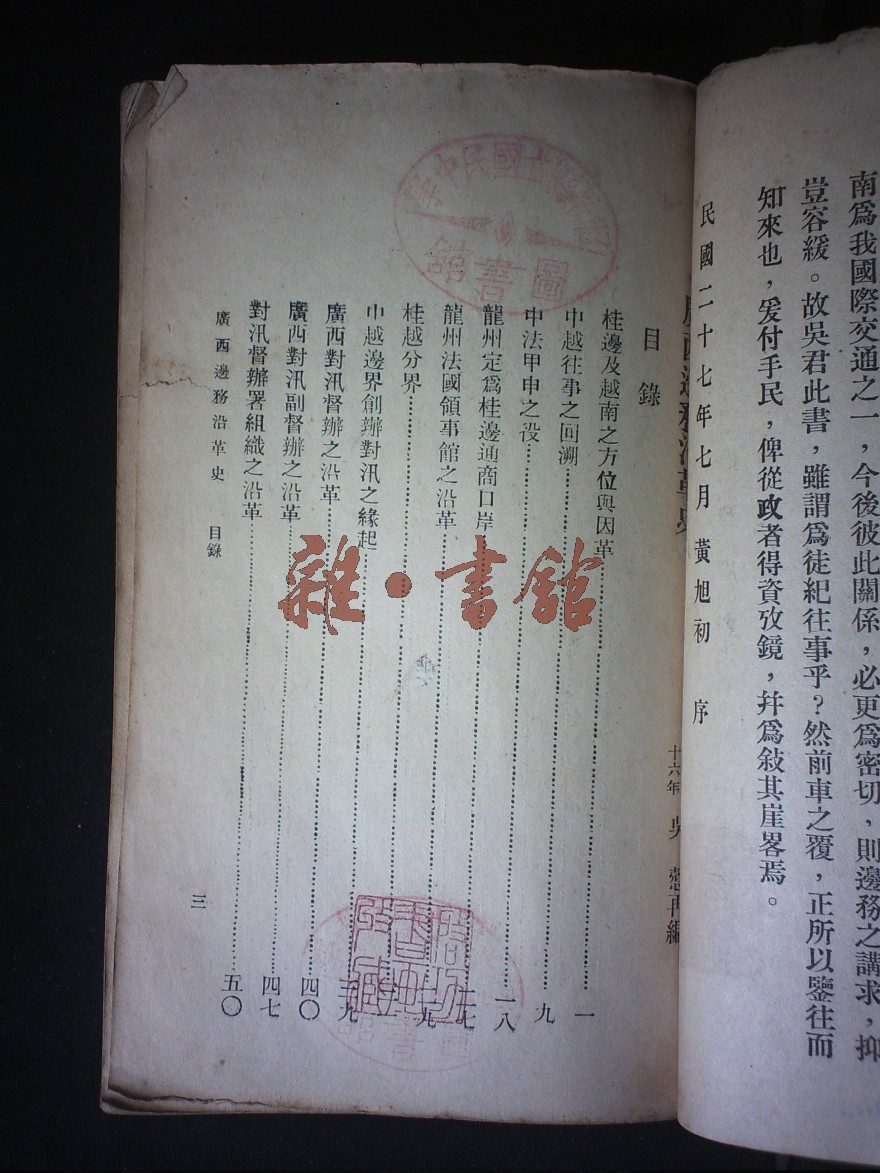 南爲我國際交通之一，今後彼此關係，必更爲密切，則邊務之講求，抑
豈容緩。故吳君此書，雖謂爲徒紀往事乎？然前車之覆，正所以鑒往而
知來也，爰付手民，俾從政者得資攷鏡，并爲敍其崖畧焉。
民國二十七年七月黃旭初 序
十六年 吳 再編
目錄
桂邊及越南之方位與因革 一
中越往事之回溯 九
中法甲申之役 一八
龍州定爲桂邊通商口岸
龍州法國領事館之沿革
桂越分界
中越邊界創辦對汛之緣起
廣西對汛督辦之沿革 四〇
廣西對汛副督辦之沿革 四七
對汛督辦署組織之沿革 五〇
廣西邊務沿革史 目錄
三
雜·書館
圖書館